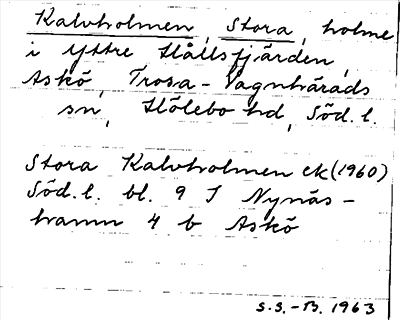 Kalvholmen, Stora, holme
i yttre Hållsfjärden,
Askö, Trosa-Vagnhärads
sn, Hölebo hd, Söd. l.
Stora Kalvholmen ek (1960)
Söd. l. bl. 9 I Nynäs-
hamn 4 b Askö
S.S.-B. 1963